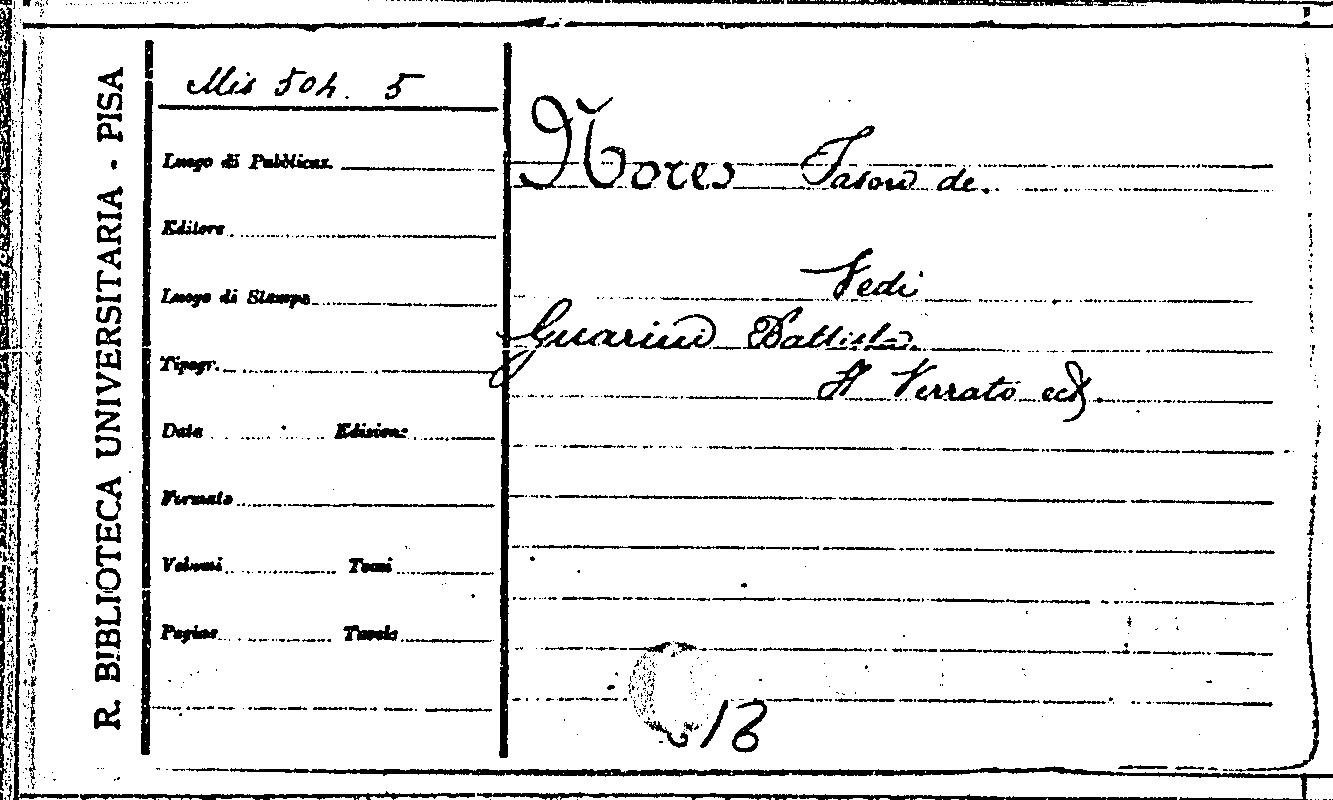 R. BIBLIOTECA UNIVERSITARIA - PISA
Mis 504. 5
Luogo di Pubblicaz.
Editore
Luogo di Stampa
Tipogr.
Data Edizione
Formato
Volumi Tomi
Pagine Tavole
Nores Jason de.
Vedi
Guarini Battista.
Il Verrato ecc.
18